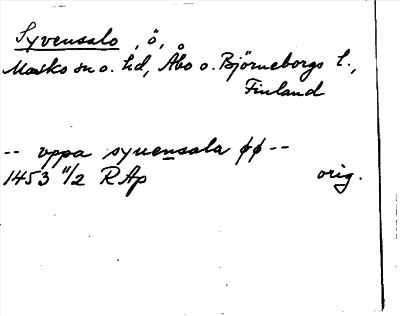 Syvensalo, ö,
Masko sn o. hd, Åbo o. Björneborgs l.,
Finland
-- vppa syuensala ϕϕ --
1453 11/2 RAp orig.